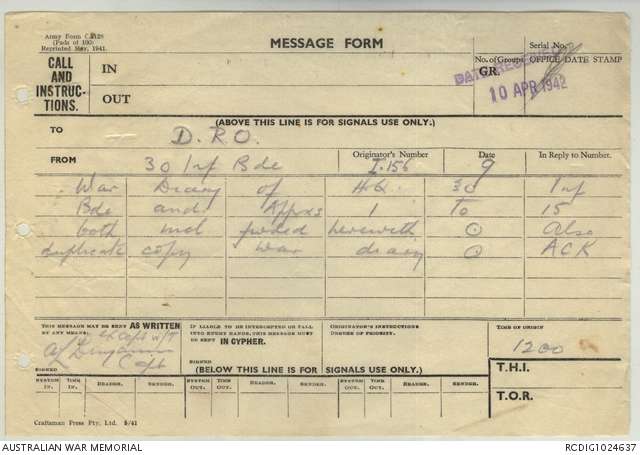 Army Form C.2128
(Pads of 100)
Reprinted May, 1941.
MESSAGE FORM
Serial No.
CALL AND INSTRUC- TIONS.
IN
OUT
No. of Groups
GR.
OFFICE DATE STAMP
DATE RECEIVED
10 APR 1942
(ABOVE THIS LINE IS FOR SIGNALS USE ONLY.)
TO D.R.O.
FROM 30 Inf Bde
Originator's Number I.156
Date 9
In Reply to Number.
War Diary of H.Q. 30 Inf
Bde and Appxs 1 to 15
both incl fwded herewith ⊙ Also
duplicate copy war diary ⊙ ACK
THIS MESSAGE MAY BE SENT AS WRITTEN BY ANY MEANS.
except W/T
Capt
SIGNED
IF LIABLE TO BE INTERCEPTED OR FALL INTO ENEMY HANDS, THIS MESSAGE MUST BE SENT IN CYPHER.
SIGNED
ORIGINATOR'S INSTRUCTIONS
DEGREE OF PRIORITY.
TIME OF ORIGIN
1200
(BELOW THIS LINE IS FOR SIGNALS USE ONLY.)
T.H.I.
T.O.R.
SYSTEM IN. TIME IN. READER. SENDER. SYSTEM OUT. TIME OUT. READER. SENDER. SYSTEM OUT. TIME OUT. READER. SENDER.
Craftsman Press Pty. Ltd. 5/41
AUSTRALIAN WAR MEMORIAL
RCDIG1024637